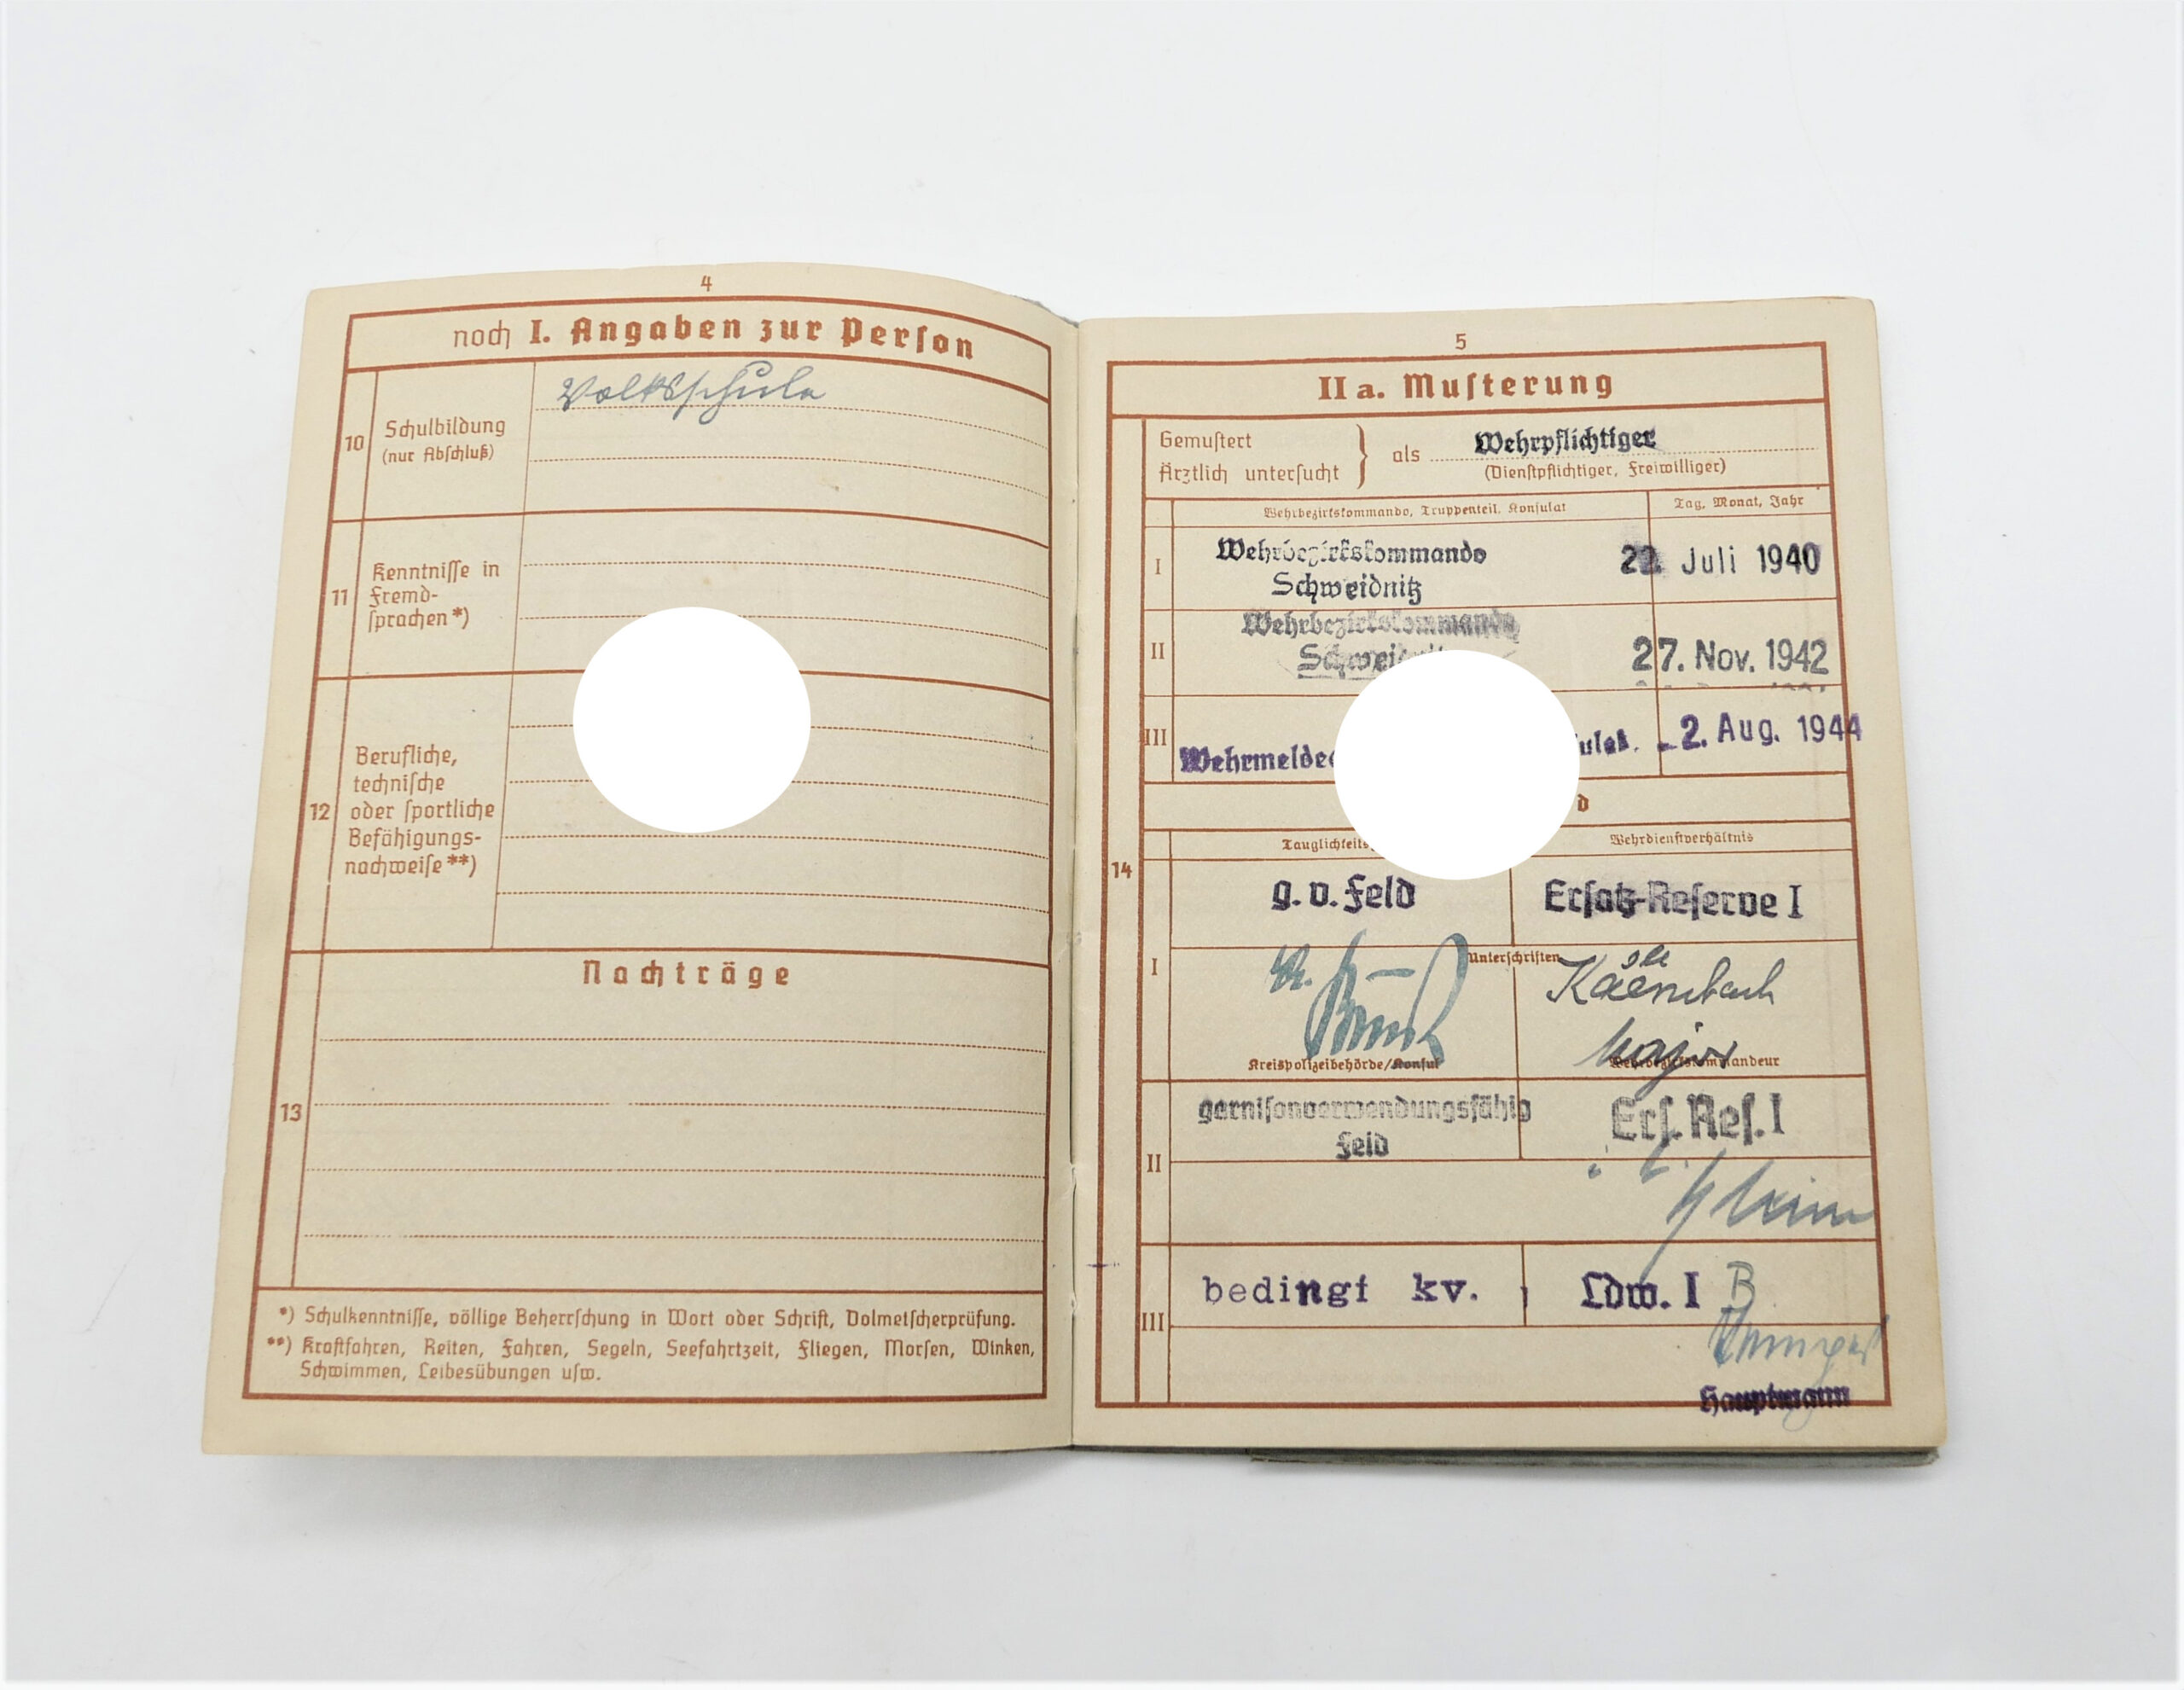 4
noch I. Angaben zur Person
10
Schulbildung
(nur Abschluß)
Volksschule
11
Kenntnisse in
Fremd-
sprachen *)
12
Berufliche,
technische
oder sportliche
Befähigungs-
nachweise **)
Nachträge
13
*) Schulkenntnisse, völlige Beherrschung in Wort oder Schrift, Dolmetscherprüfung.
**) Kraftfahren, Reiten, Fahren, Segeln, Seefahrtzeit, Fliegen, Morsen, Winken,
Schwimmen, Leibesübungen usw.
5
II a. Musterung
Gemustert
Ärztlich untersucht } als Wehrpflichtiger
(Dienstpflichtiger, Freiwilliger)
Wehrbezirkskommando, Truppenteil, Konsulat
Tag, Monat, Jahr
I
Wehrbezirkskommando
Schweidnitz
Juli 1940
II
Wehrbezirkskommando
27. Nov. 1942
III
2. Aug. 1944
14
Wehrdienstverhältnis
I
g. v. Feld
Ersatz-Reserve I
Unterschriften
Major
Kreispolizeibehörde/Konsul
Wehrbezirkskommandeur
II
garnisonverwendungsfähig
Feld
Ers. Res. I
III
bedingt kv.
Ldw. I B
Hauptmann